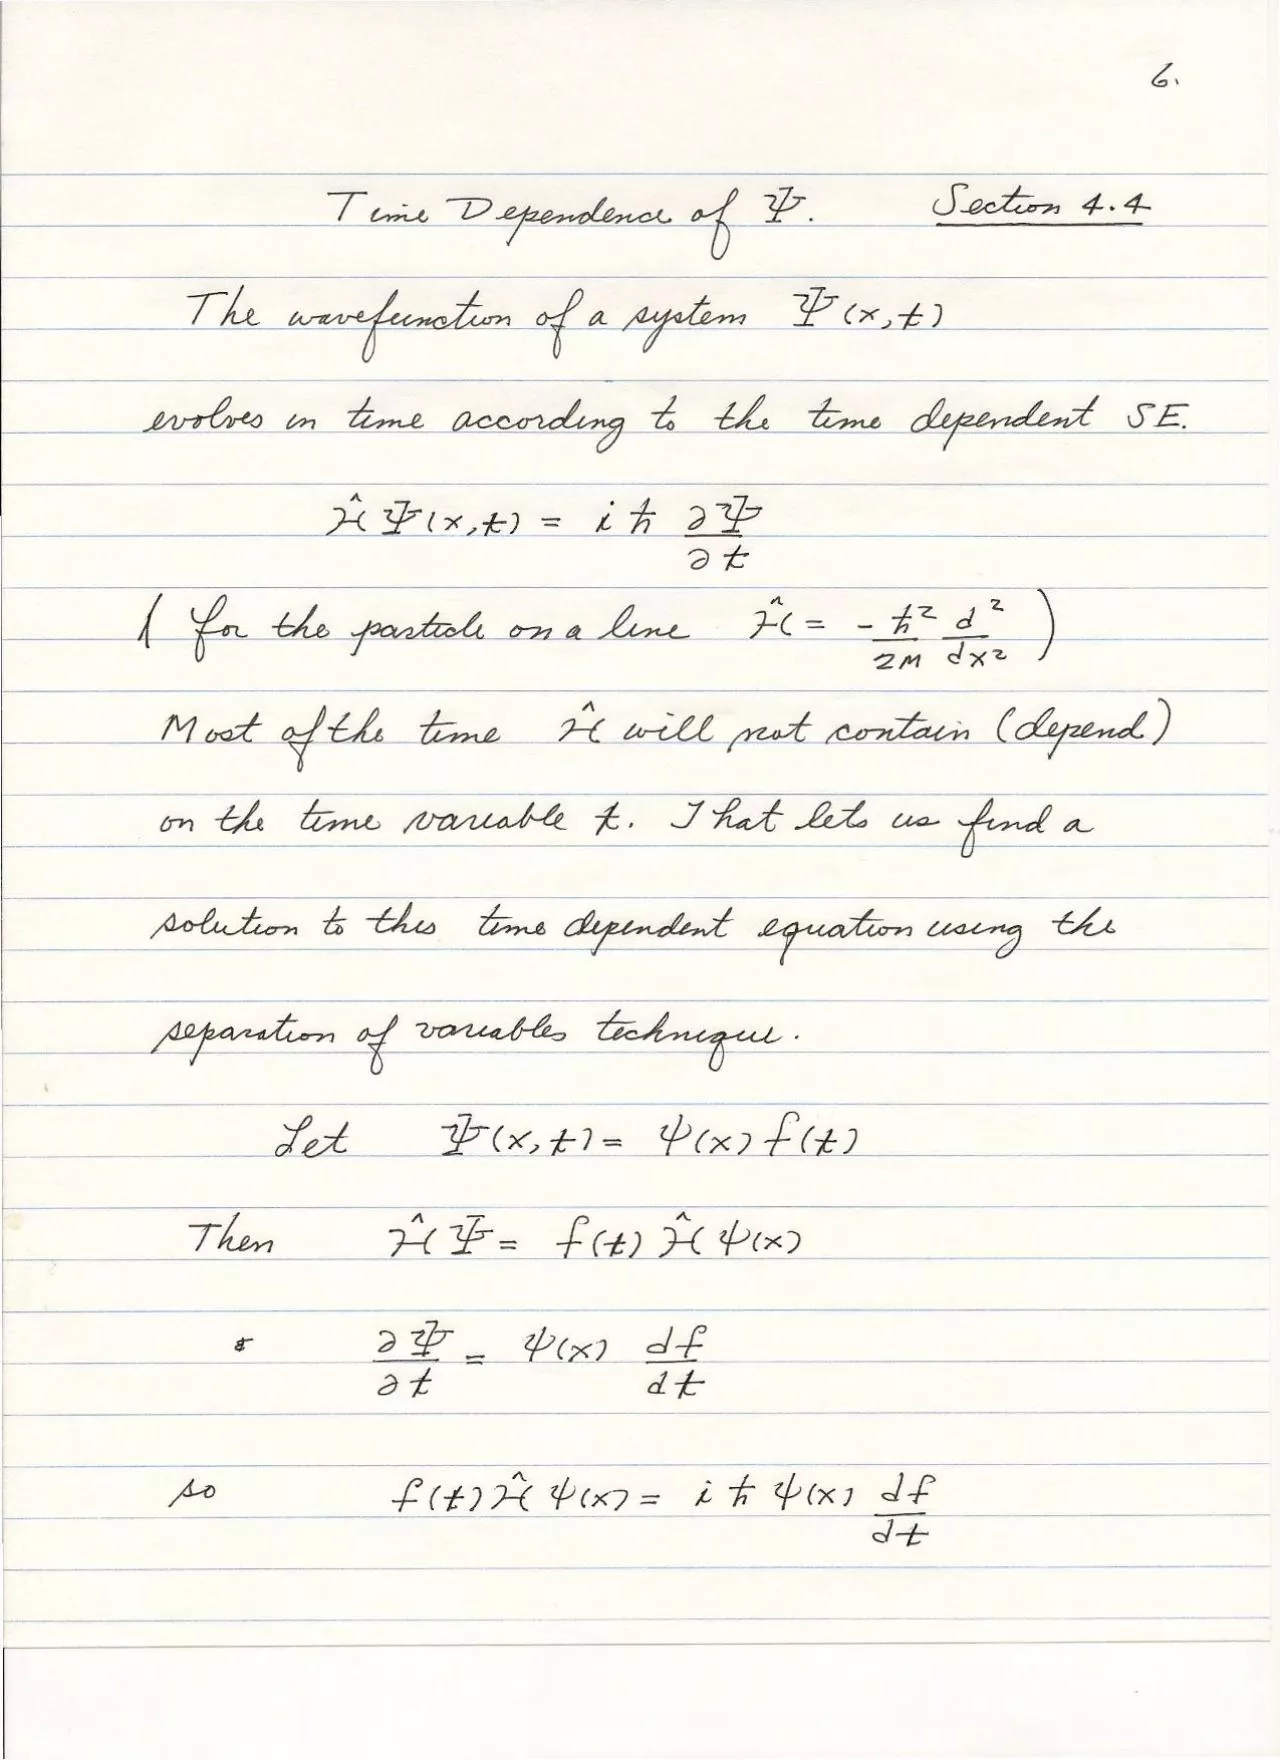 6.
Time Dependence of Ψ. Section 4.4
The wavefunction of a system Ψ(x,t)
evolves in time according to the time dependent SE.
Ĥ Ψ(x,t) = iħ ∂Ψ/∂t
( for the particle on a line Ĥ = - ħ²/2M d²/dx² )
Most of the time Ĥ will not contain (depend)
on the time variable t. That lets us find a
solution to this time dependent equation using the
separation of variables technique.
Let Ψ(x,t) = ψ(x) f(t)
Then Ĥ Ψ = f(t) Ĥ ψ(x)
& ∂Ψ/∂t = ψ(x) df/dt
so f(t) Ĥ ψ(x) = iħ ψ(x) df/dt